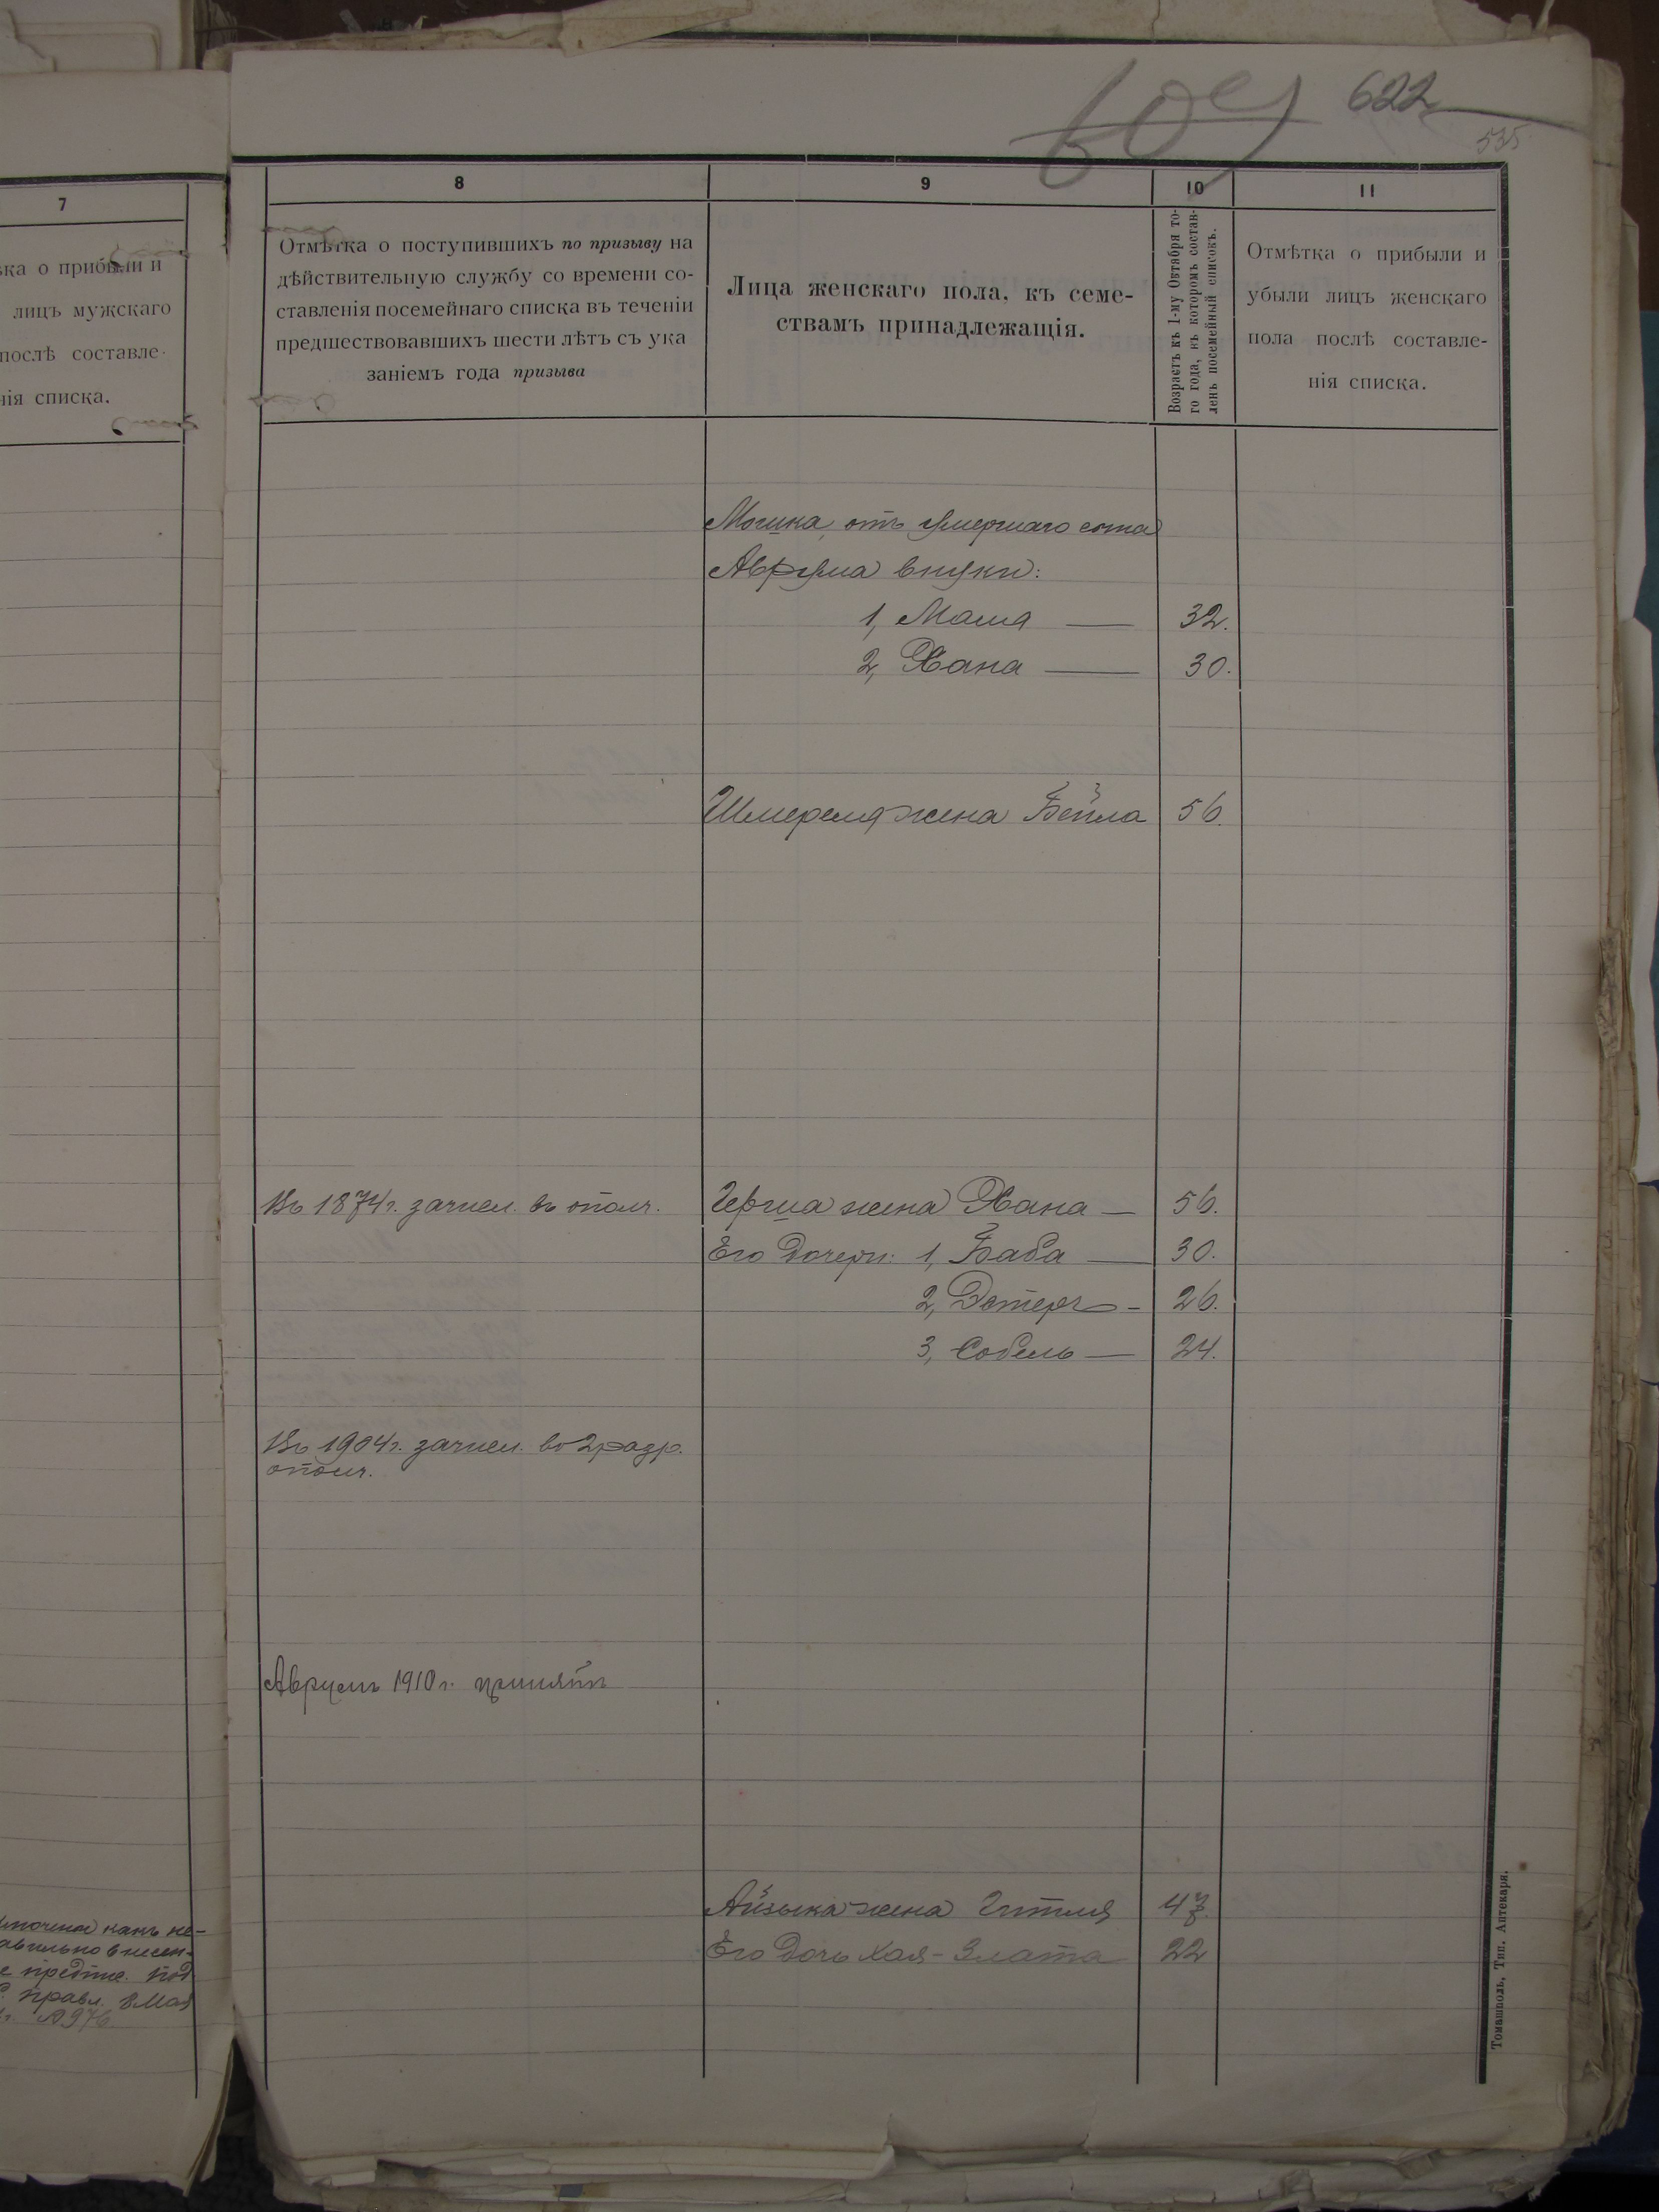 622
535
7
ка о прибыли и
лицъ мужскаго
послѣ составле-
нія списка.
какъ не-
правл. 8 Мая
№ 976
8
Отмѣтка о поступившихъ по призыву на
дѣйствительную службу со времени со-
ставленія посемейнаго списка въ теченіи
предшествовавшихъ шести лѣтъ съ ука
заніемъ года призыва
9
Лица женскаго пола, къ семе-
ствамъ принадлежащія.
10
Возрастъ къ 1-му Октября то-
го года, въ которомъ состав-
ленъ посемейный списокъ.
11
Отмѣтка о прибыли и
убыли лицъ женскаго
пола послѣ составле-
нія списка.
Мошка, отъ умершаго сына
Аврума внуки:
1, Маша — 32.
2, Хана — 30.
Шмереля жена Бейла 56.
Въ 1874 г. зачисл. въ ополч.
Герша жена Хана — 56.
Его дочери: 1, Баба — 30.
2, Эстеръ — 26.
3, Собель — 24.
Въ 1904 г. зачисл. во 2 разр.
ополч.
Аврумъ 1910 г. принятъ
Айзыка жена Гитля 47.
Его дочь Хая-Злата 22
Томашполь, Тип. Аптекаря.